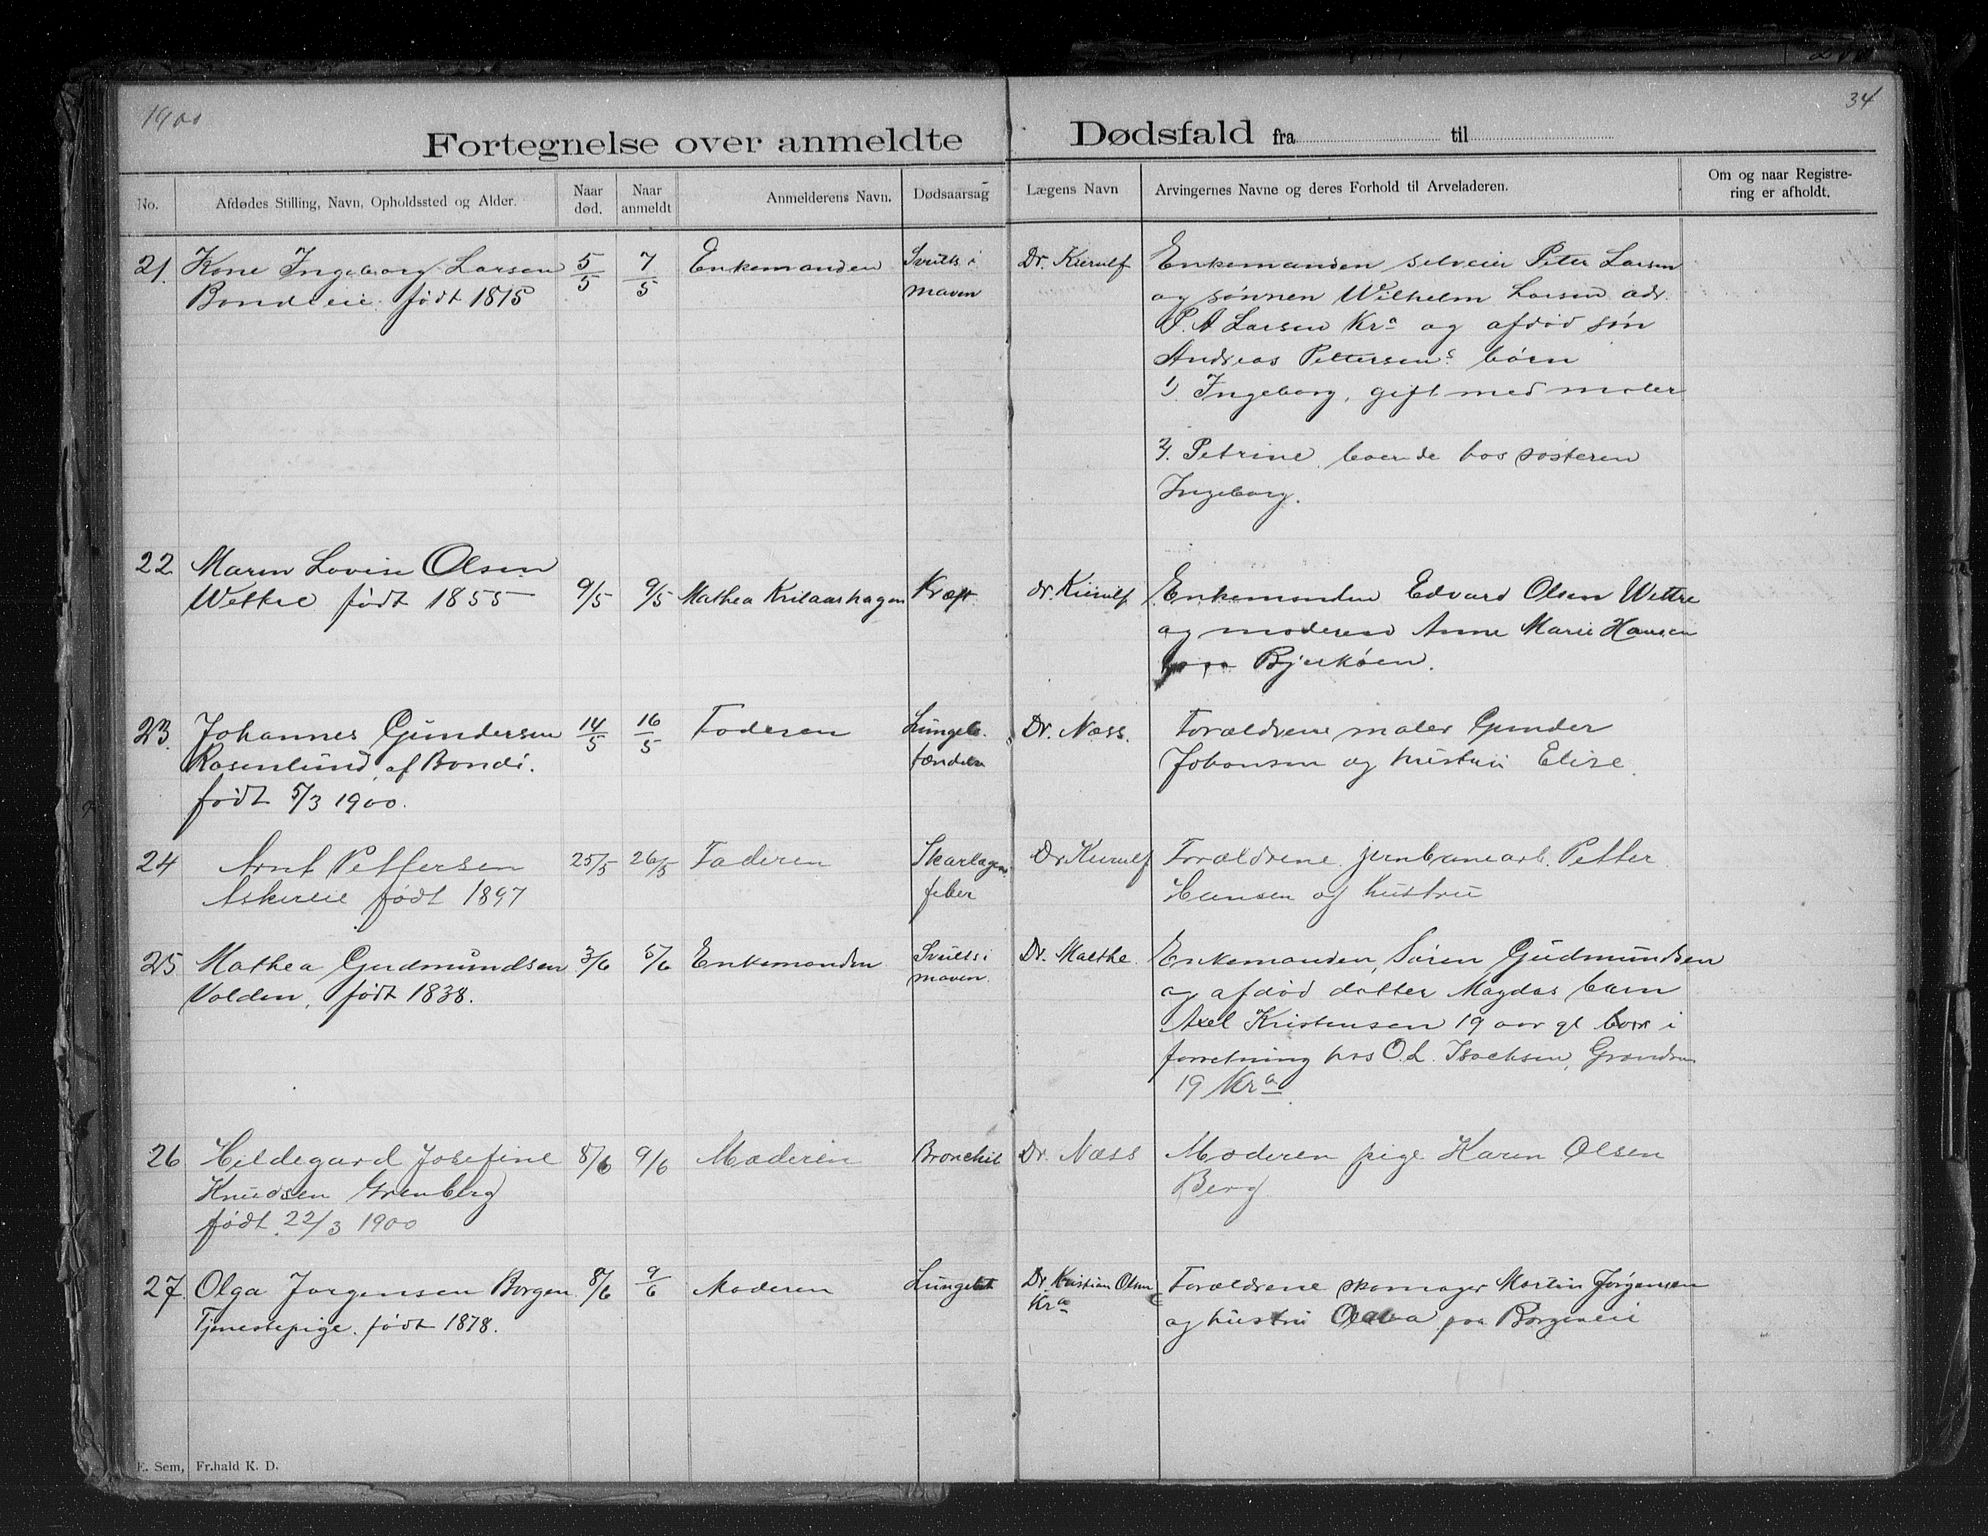 1900
34
Fortegnelse over anmeldte Dødsfald fra til
No.
Afdødes Stilling, Navn, Opholdssted og Alder.
Naar død.
Naar anmeldt
Anmelderens Navn.
Dødsaarsag
Lægens Navn
Arvingernes Navne og deres Forhold til Arveladeren.
Om og naar Registre-
ring er afholdt.
21. Kone Ingeborg Larsen
Bondeeie født 1815
5/5
7/5
Enkemanden
Svulst i
maven
Dr. Kierulf
Enkemanden selveier Peter Larsen
og sønnen Wilhelm Larsen adr.
P. A Larsen Kra og afdød søn
Andreas Pettersens børn
1). Ingeborg, gift med maler
2). Petrine boende hos søsteren
Ingeborg.
22 Maren Lovise Olsen
Wettre født 1855
9/5
9/5
Mathea
Kræft
dr. Kierulf
Enkemanden Edvard Olsen Wettre
og moderen Anne Marie Hansen
paa Bjerkøen.
23. Johannes Gundersen
Rosenlund, af Bondi.
født 5/3 1900.
14/5
16/5
Faderen
Lungebe.
tændelse
Dr. Næss.
Forældrene maler Gunder
Johansen og hustru Elise.
24 Arnt Pettersen
Askereie født 1897
25/5
26/5
Faderen
Skarlagens
feber
Dr. Kierulf
Forældrene jernbanearb. Petter
Hansen og hustru
25 Mathea Gudmundsen
Volden, født 1838.
3/6
5/6
Enkemanden
Svulst i
maven.
Dr. Malthe
Enkemanden, Søren Gudmundsen
og afdød datter Magdas barn
Axel Kristensen 19 aar gl. i
forretning hos O. L. Isachsen, Grændsen
19 Kra
26 Hildegard Josefine
Knudsen Grenberg
født 22/3 1900
8/6
9/6
Moderen
Bronchit
Dr. Næss
Moderen pige Karen Olsen
Berg
27. Olga Jørgensen Borgen
Tjenestepige. født 1878.
8/6
9/6
Moderen
Dr. Kristian Olsen
Kra
Forældrene skomager Martin Jørgensen
og hustru Olava paa Borgeneie
E. Sem, Fr.hald K. D.